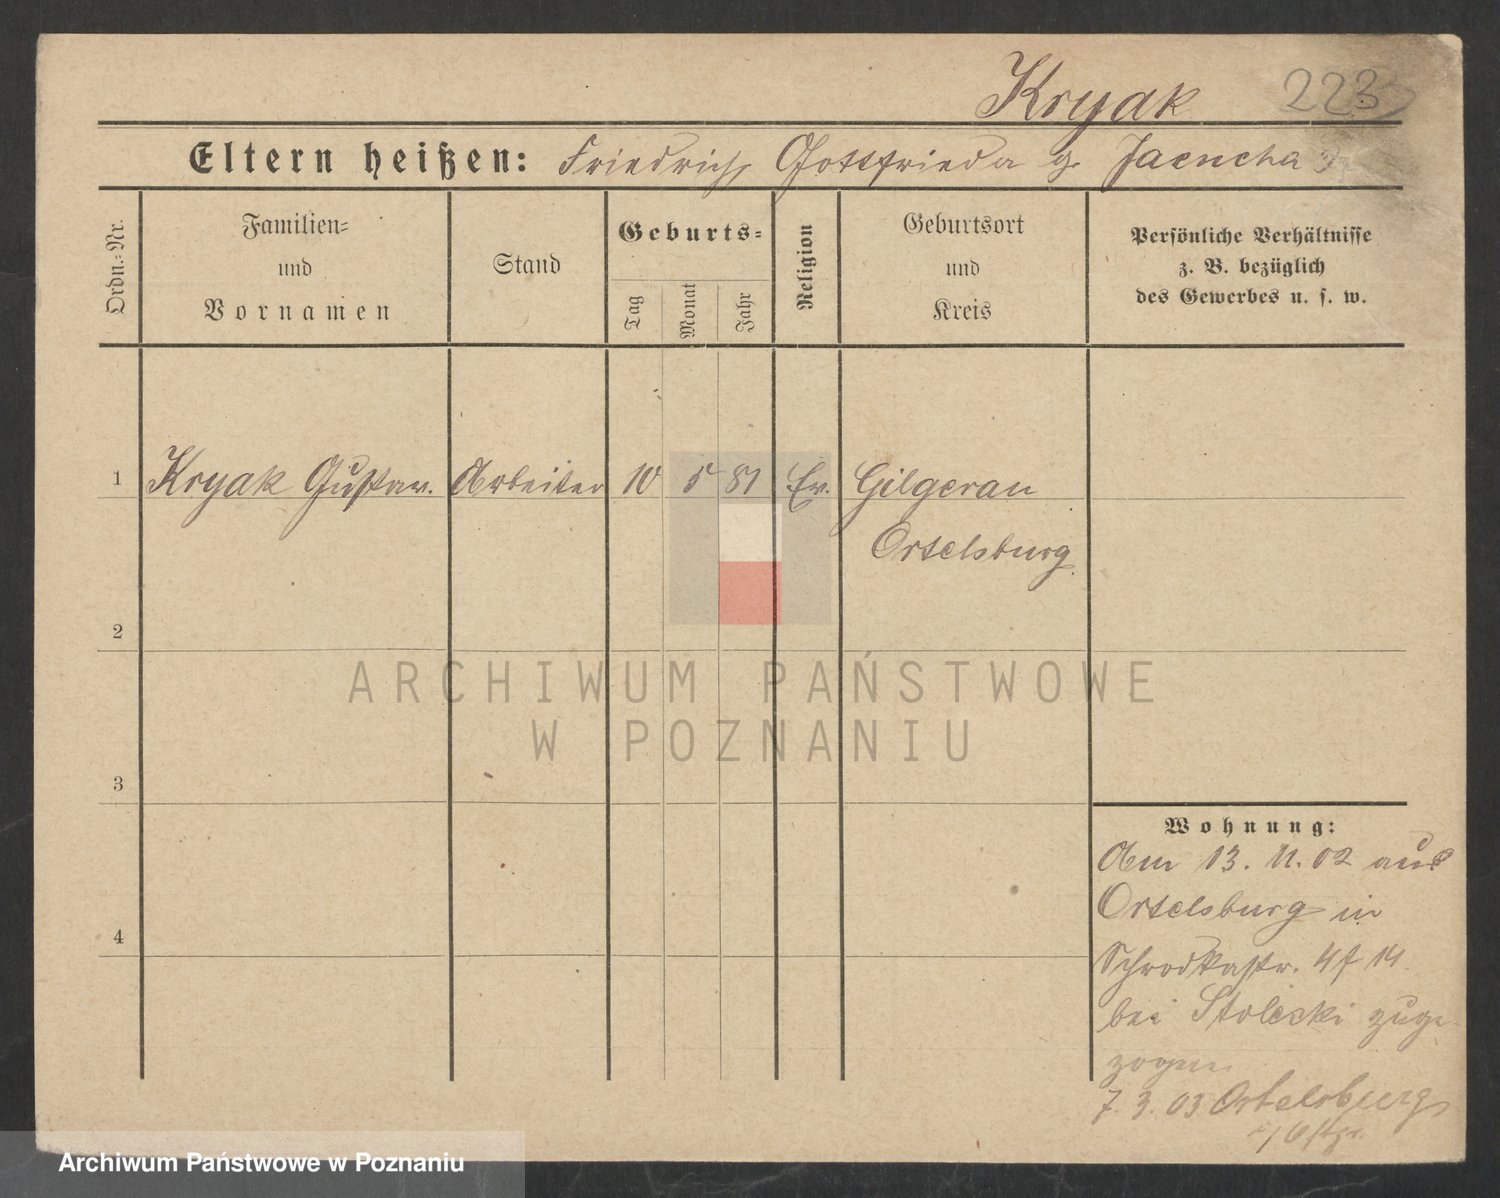 Kryak 223
Eltern heißen: Friedrich, Gottfrieda g. Jaencha
Ordn.-Nr.
Familien-
und
Vornamen
Stand
Geburts-
Tag
Monat
Jahr
Religion
Geburtsort
und
Kreis
Persönliche Verhältnisse
z. B. bezüglich
des Gewerbes u. s. w.
1 Kryak Gustav. Arbeiter 10 5 81 Ev. Gilgenau
Ortelsburg
2
3
4
Wohnung:
Am 13. 11. 02 aus
Ortelsburg in
Schrodkastr. 4 14
bei Stolecki zuge-
zogen.
7. 3. 03 Ortelsburg
i/Ostpr.
ARCHIWUM PAŃSTWOWE
W POZNANIU
Archiwum Państwowe w Poznaniu